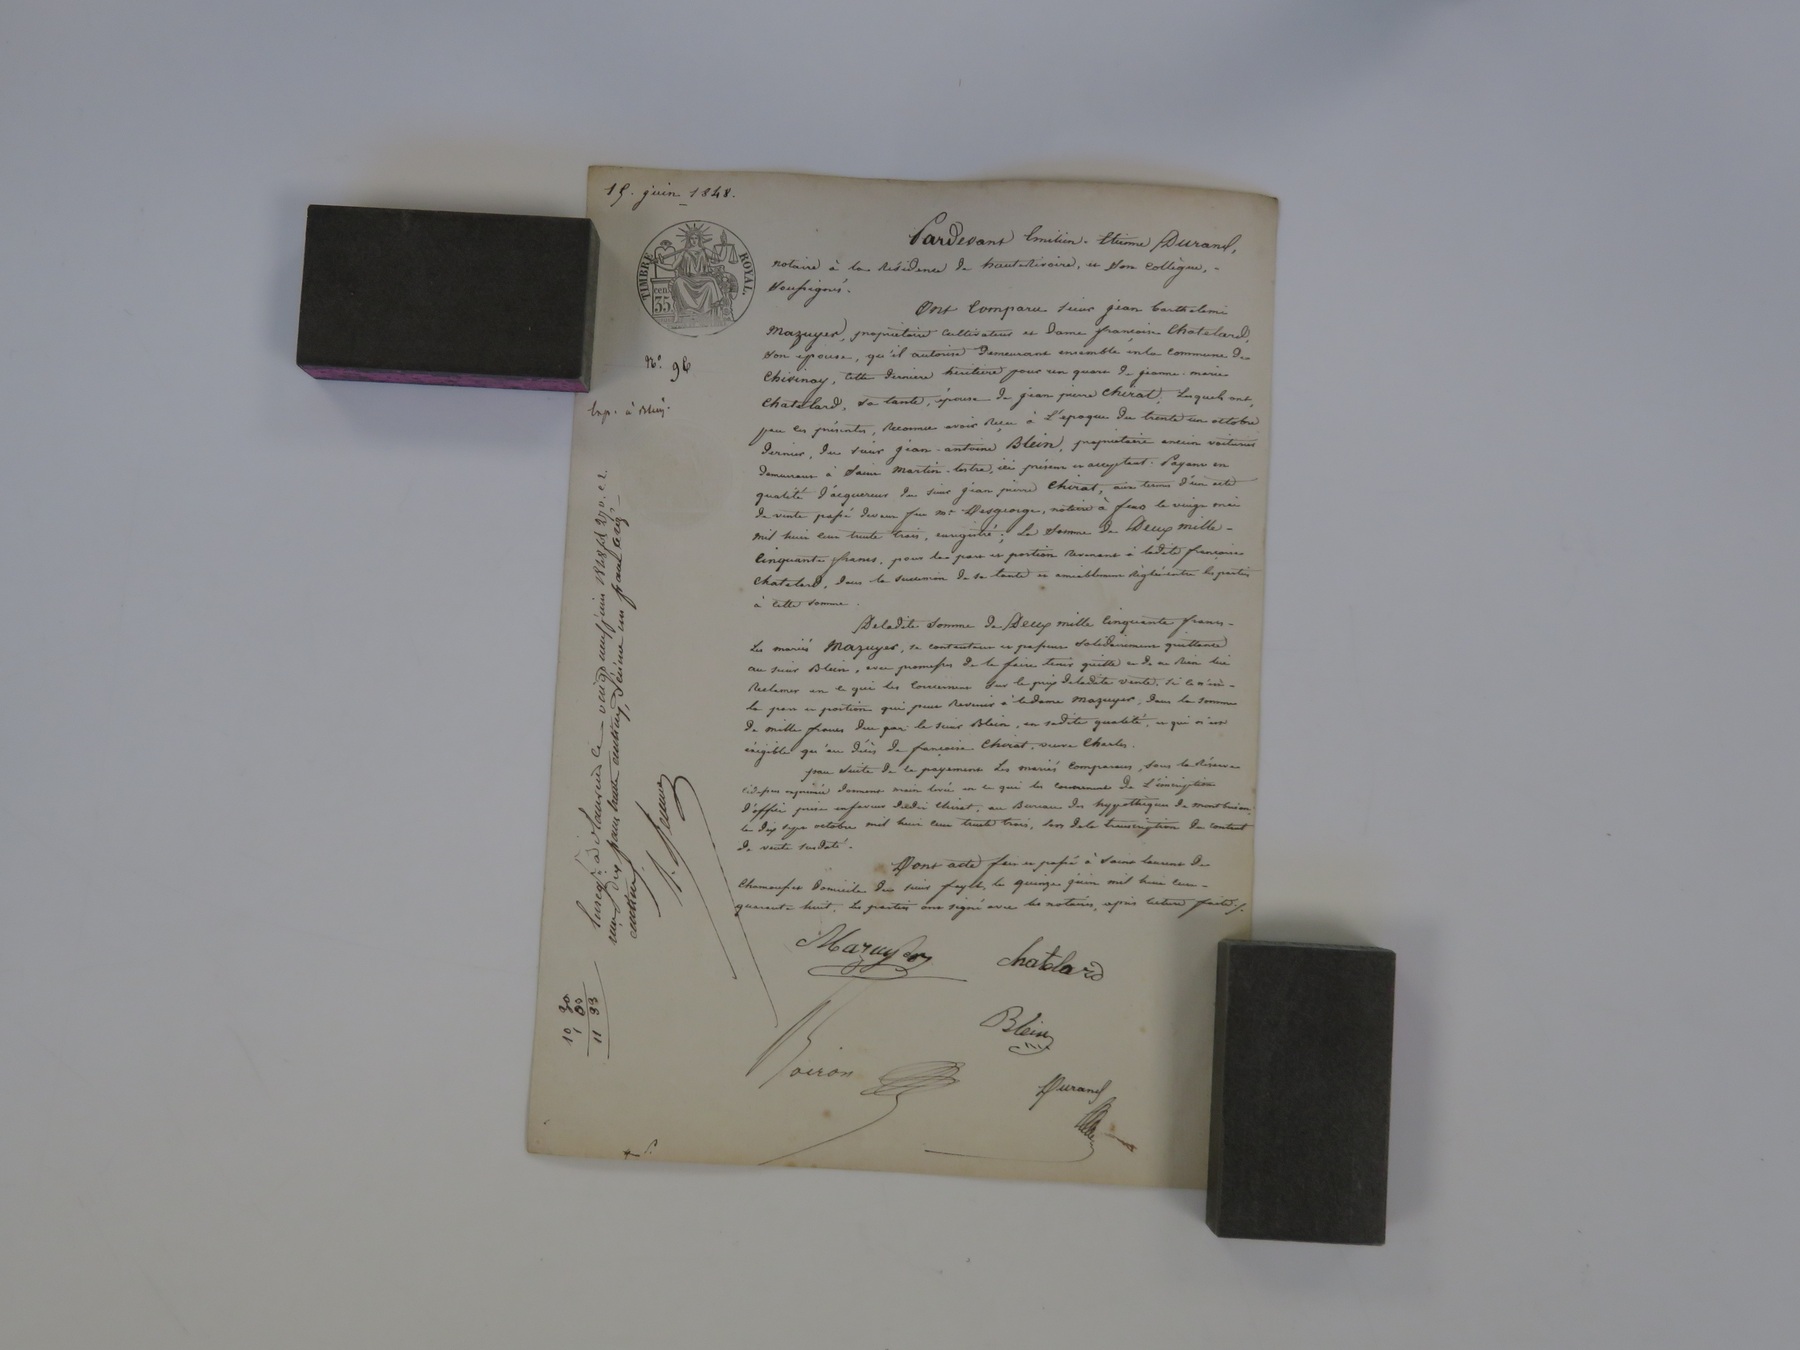 15. juin 1848.
TIMBRE ROYAL.
cen.
35
N°. 96
Exp. à Blein.
Pardevant Emilien-Etienne Durand,
notaire à la résidence de hauterivoire, et son collègue,
soussignés.
Ont comparu sieur jean barthelemi
Mazuyer, propriétaire cultivateur et dame françoise Chatelard,
son épouse, qu'il autorise demeurant ensemble en la commune de
Chevinay, cette derniere héritière pour un quart de jeanne-marie
Chatelard, sa tante, épouse de jean pierre Chirat, Lesquels ont,
par ces présentes, reconnu avoir reçu à l'époque du trente un octobre
dernier, du sieur jean-antoine Blein, propriétaire ancien voiturier
demeurant à Saint Martin-lestra, ici présent et acceptant. Payant en
qualité d'acquereur du sieur jean pierre Chirat, aux termes d'un acte
de vente passé devant feu Me Desgeorge, notaire à feurs le vingt mai
mil huit cent trente trois, enregistré; La somme de Deux mille
Cinquante francs, pour les part et portion revenant à ladite françoise
Chatelard, dans la succession de sa tante et amiablement réglés entre les parties
à cette somme.
De ladite somme de Deux mille Cinquante francs
les mariés Mazuyer, se contentent et passent solidairement quittance
au sieur Blein, avec promesse de le faire tenir quitte et de ne rien lui
réclamer en ce qui les concernent sur le prix de ladite vente, si ce n'est
la part et portion qui peut revenir à la dame Mazuyer, dans la somme
de mille francs due par le sieur Blein, en sadite qualité, et qui n'est
exigible qu'au décès de françoise Chirat, veuve Charles.
par suite de ce payement les mariés comparants, sous la réserve
cidessus exprimée donnent main levée en ce qui les concernent de l'inscription
d'office prise en faveur dudit Chirat, au Bureau des hypothèques de montbrison
le dix sept octobre mil huit cent trente trois, lors de la transcription du contrat
de vente susdaté.
Dont acte fait et passé à Saint laurent de
Chamousset domicile du sieur la quinze juin mil huit cent
quarante huit. les parties ont signé avec les notaires, après lecture faite./.
Mazuyer
Chatelard
Blein
Boiron
Durand
Enregé à St Laurent ce vingt neuf juin 1848
reçu dix francs trente centimes, dixième un franc trois
centimes
10 30
1 03
11 33